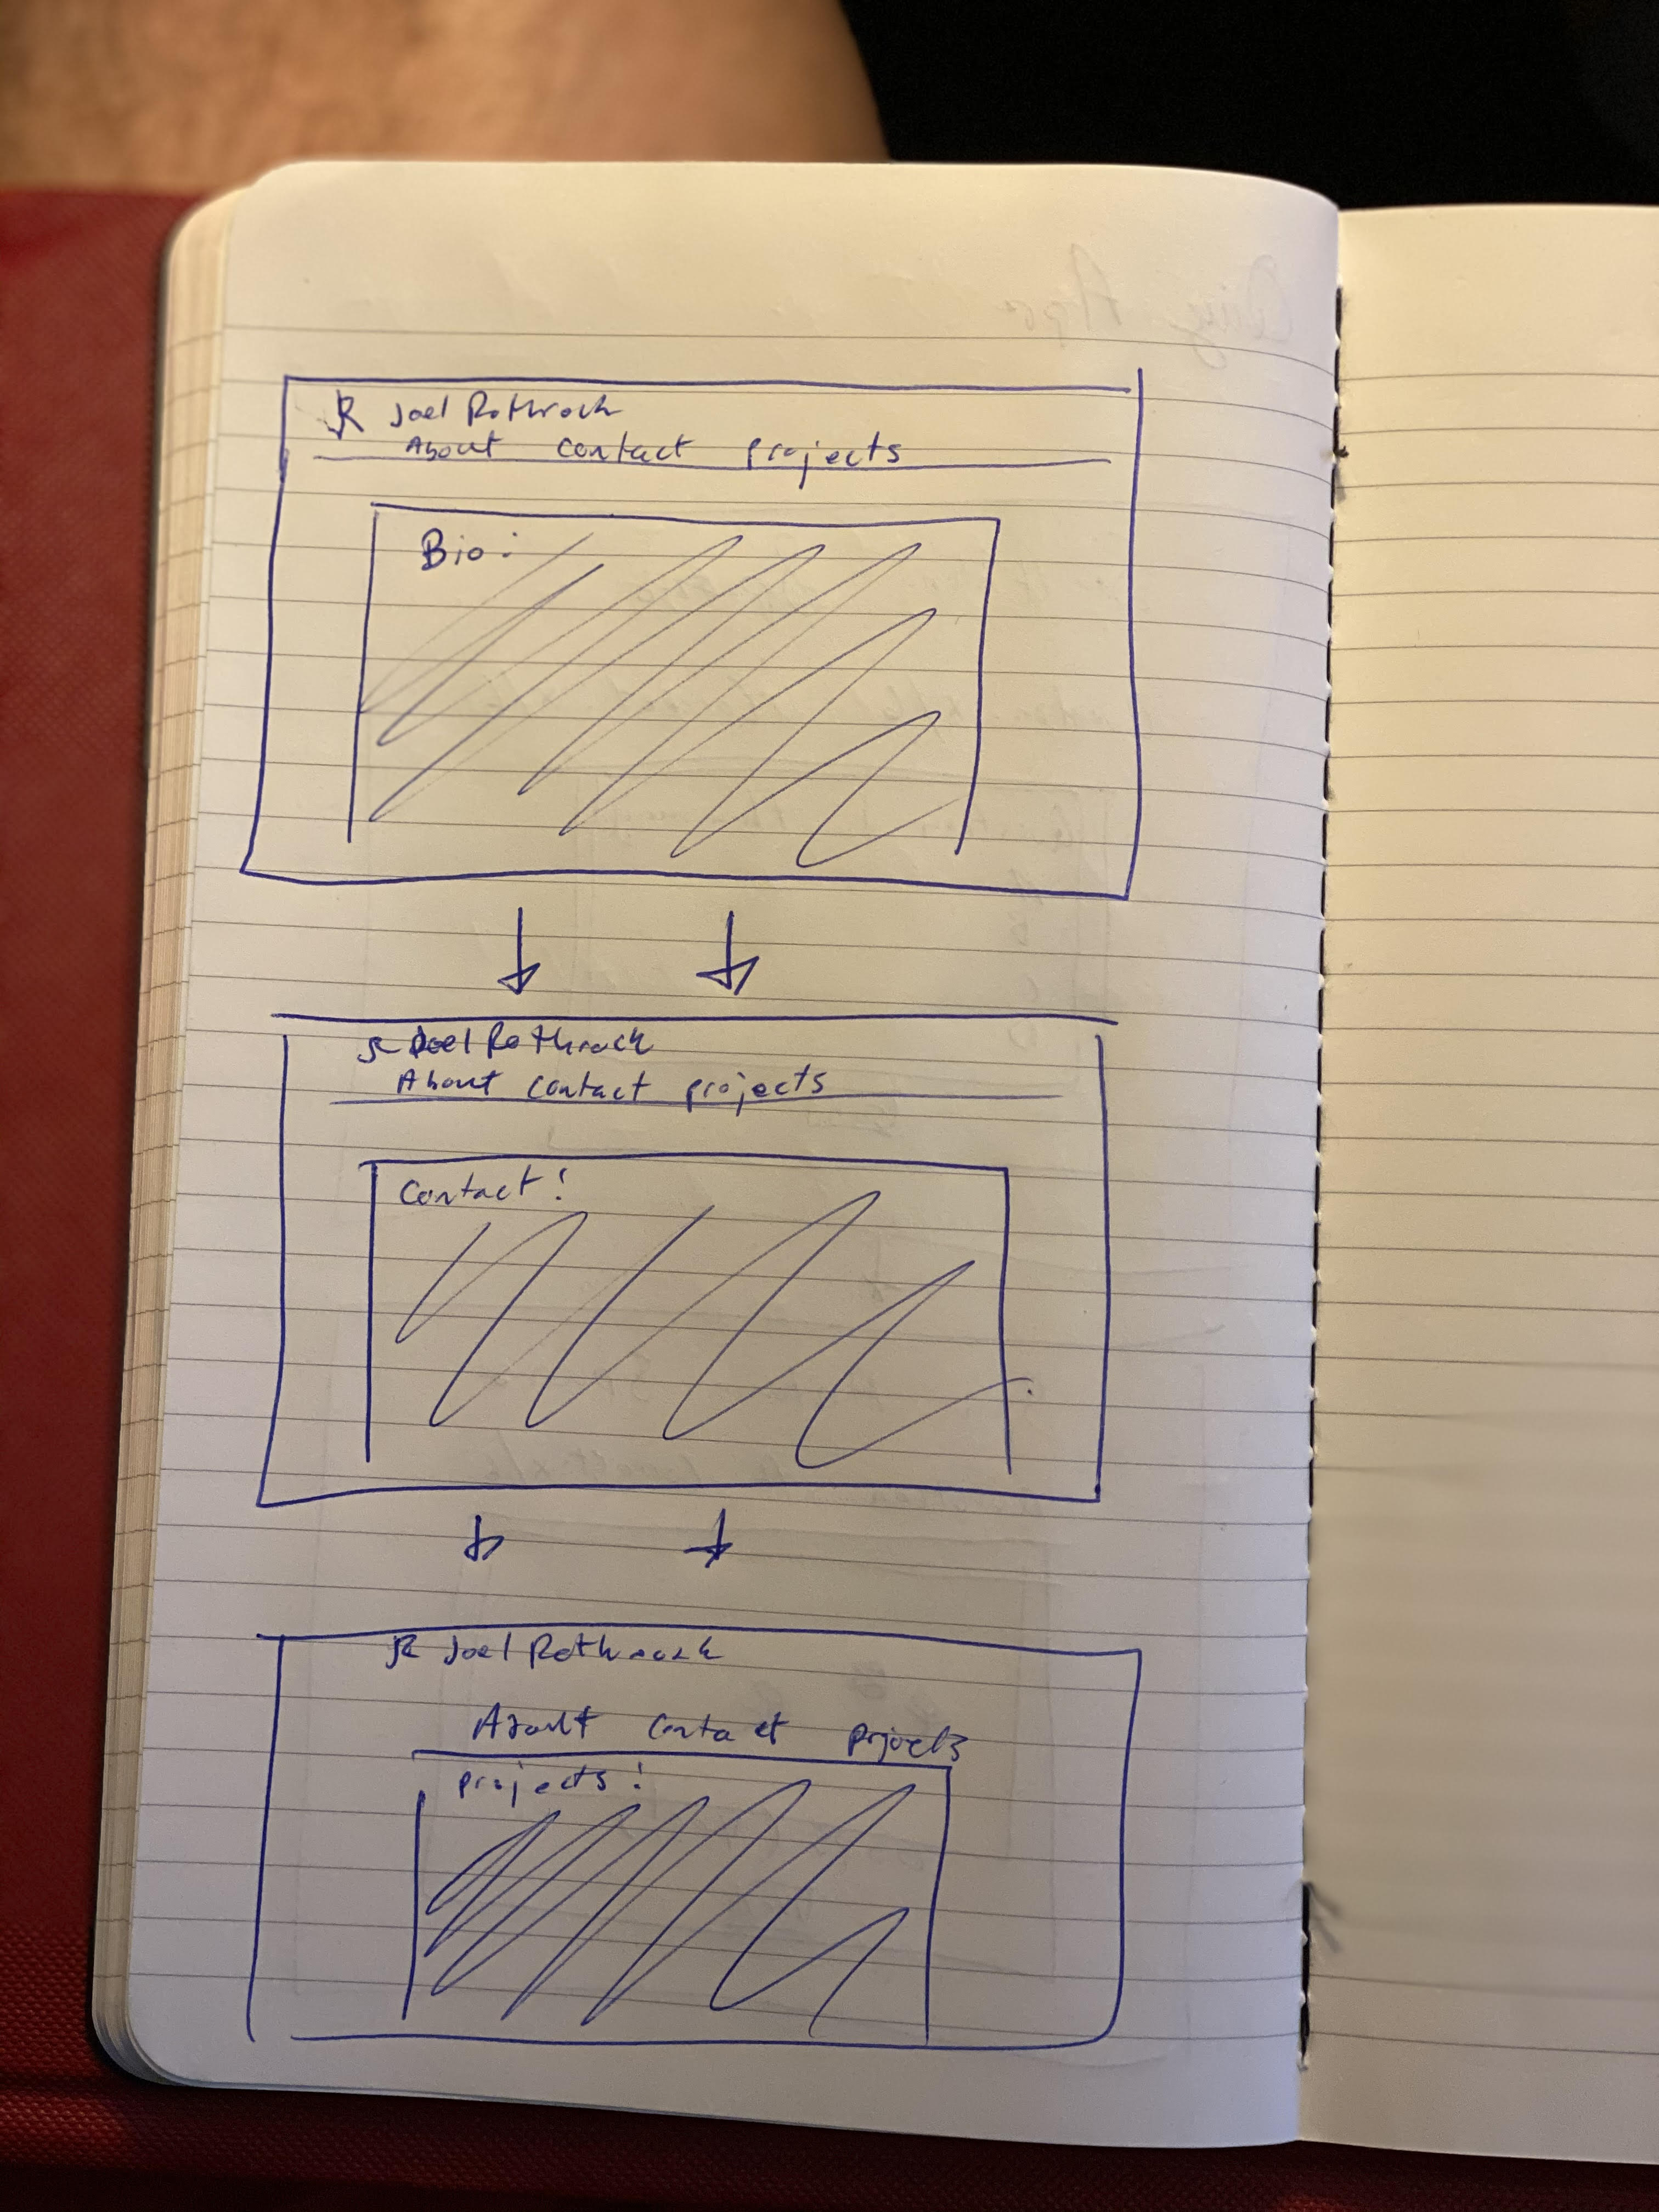 JR Joel Rothrock
About contact projects
Bio:
JR Joel Rothrock
About contact projects
Contact!
JR Joel Rothrock
About contact projects
projects!